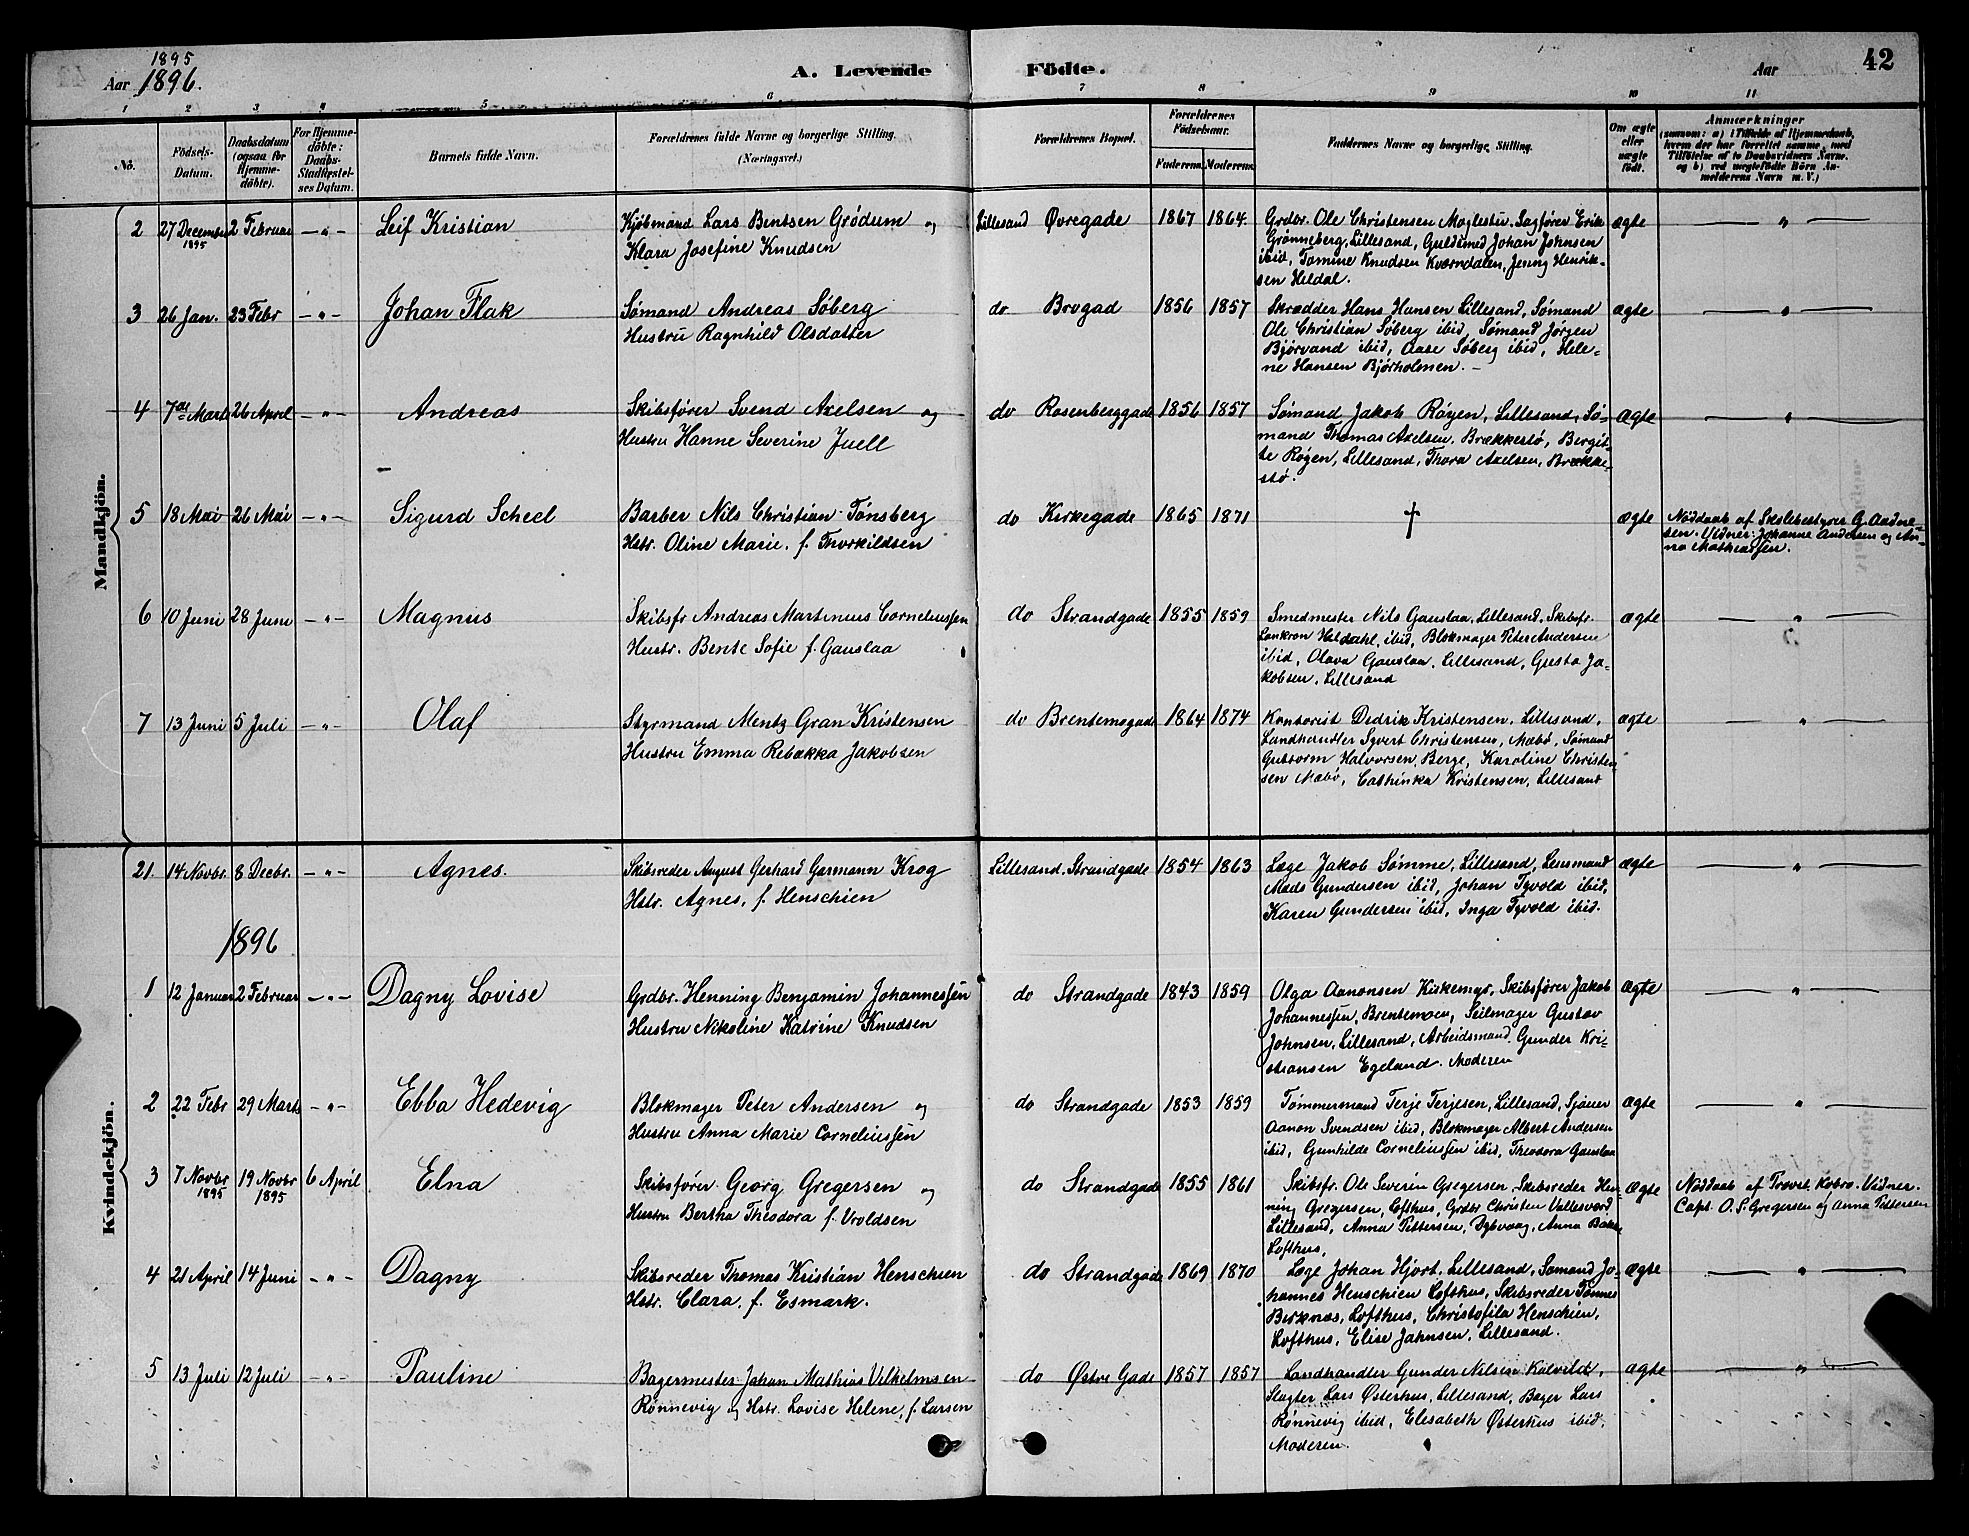 1895
Aar 1896.
A. Levende Födte.
Aar
42
1 2 3 4 5 6 7 8 9 10 11
No.
Födsels-Datum.
Daabsdatum (ogsaa for Hjemme-döbte).
For Hjemme-döbte: Daabs-Stadfæstel-ses Datum.
Barnets fulde Navn.
Forældrenes fulde Navne og borgerlige Stilling.
(Næringsvei.)
Forældrenes Bopæl.
Forældrenes Födselsaar.
Faderens. Moderens.
Faddernes Navne og borgerlige Stilling.
Om ægte eller uægte födt.
Anmærkninger
(saasom: a) i Tilfælde af Hjemmedaab,
hvem der har forrettet samme, med
Tilföielse af to Daabsvidners Navne.
og b) ved uægtefödte Börn An-
melderens Navn m. V.)
Mandkjön.
2 27 December 1895 2 Februar — " — Leif Kristian Kjøbmand Lars Bentsen Grødum og Lillesand Øvregade 1867 1864. Grdbr. Ole Christensen Moglestu, Sagfører Erik ægte — " —
Klara Josefine Knudsen Grønneberg, Lillesand, Guldsmed Johan Johnsen
ibid, Tomine Knudsen Kværndalen, Jenny Henrik-
sen Heldal.
3 26 Jan. 23 Febr — " — Johan Flak Sømand Andreas Søberg do Brogad 1856 1857 Skrædder Hans Hansen Lillesand, Sømand ægte — " —
Hustru Ragnhild Olsdatter Ole Christian Søberg ibid, Sømand Jørgen
Bjørvand ibid, Aase Søberg ibid, Hele-
ne Hansen Bjørholmen. —
4 7de Marts 26 April — " — Andreas Skibsfører Svend Axelsen og do Rosenberggade 1856 1857 Sømand Jakob Røyen, Lillesand, Sø- Ægte — " —
Hustru Hanne Severine Juell mand Thomas Axelsen, Brækkestø, Bergit-
te Røyen, Lillesand, Thora Axelsen, Brække-
stø.
5 18 Mai 26 Mai — " — Sigurd Scheel Barber Nils Christian Tønsberg do Kirkegade 1865 1871 † ægte Nøddaab af Skolebestyrer G. Aadne-
Hstr. Oline Marie, f. Thorkildsen sen. Vidner: Johanne Andersen og An-
na Mathiassen.
6 10 Juni 28 Juni — " — Magnus Skibsfr Andreas Martinus Corneliussen do Strandgade 1855 1859 Smedmester Nils Gauslaa, Lillesand, Skibsfr. ægte — " —
Hustr. Bente Sofie f. Gauslaa Heldahl, ibid, Blokmager Peter Andersen
ibid, Olava Gauslaa, Lillesand, Gusta Ja-
kobsen, Lillesand
7 13 Juni 5 Juli — " — Olaf Styrmand Mentz Gran Kristensen do Brentemogade 1864 1874 Kontorist Dedrik Kristensen, Lillesand, ægte — " —
Hustru Emma Rebækka Jakobsen Landhandler Syvert Christensen, Mæbø, Sømand
Guttorm Halvorsen, Berge, Karoline Christen-
sen Mæbø, Cathinka Kristensen, Lillesand
Kvindekjön.
21 14 Novbr 8 Decbr. — " — Agnes. Skibsreder August Gerhard Garmann Krog Lillesand. Strandgade 1854 1863 Læge Jakob Sømme, Lillesand, Lensmand ægte — " —
Hstr. Agnes, f. Henschien Mads Gundersen ibid, Johan Tyvold ibid,
Karen Gundersen ibid, Inga Tyvold ibid.
1896
1 12 Januar 2 Februar — " — Dagny Lovise Grdbr. Henning Benjamin Johannessen do Strandgade 1843 1859 Olga Aanonsen Kirkemyr, Skibsfører Jakob ægte — " —
Hustru Nikoline Katrine Knudsen Johannessen, Brentemoen, Seilmager Gustav
Johnsen, Lillesand, Arbeidsmand Gunder Kri-
stiansen Egeland. Moderen
2 22 Febr 29 Marts — " — Ebba Hedevig Blokmager Peter Andersen og do Strandgade 1853 1859 Tømmermand Terje Terjesen, Lillesand, Sjauer ægte — " —
Hustru Anna Marie Corneliussen Aanon Svendsen ibid, Blokmager Albert Andersen
ibid, Gunhilde Corneliussen ibid, Theodora Gauslaa
3 7 Novbr 1895 19 Novbr 1895 6 April Elna Skibsfører Georg Gregersen og do Strandgade 1855 1861 Skibsfr. Ole Severin Gregersen, Skibsreder Hen- Ægte Nøddaab af Provst Kobro. Vidner.
Hustru Bertha Theodora f. Vroldsen ning Gregersen, Lofthus, Grdbr Christen Vallesverd Capt. O. S. Gregersen og Anna Pettersen
Lillesand, Anna Pettersen, Dybvaag, Anna
Lofthus,
4 21 April 14 Juni — " — Dagny Skibsreder Thomas Kristian Henschien do Strandgade 1869 1870 Læge Johan Hjort, Lillesand, Sømand Jo- ægte — " —
Hstr. Clara, f. Esmark. hannes Henschien Lofthus, Skibsreder Tønnes
Birknæs, Lofthus, Christofila Henschien,
Lofthus, Elise Jahnsen, Lillesand.
5 13 Juli 12 Juli — " — Pauline Bagermester Johan Mathias Vilhelmsen do Østre Gade 1857 1857 Landhandler Gunder Nilsen Kalvild, ægte — " —
Rønnevig og Hstr. Lovise Helene, f. Larsen Slagter Lars Østerhus, Lillesand, Bager Lars
Rønnevig ibid, Elisabeth Østerhus ibid,
Moderen.